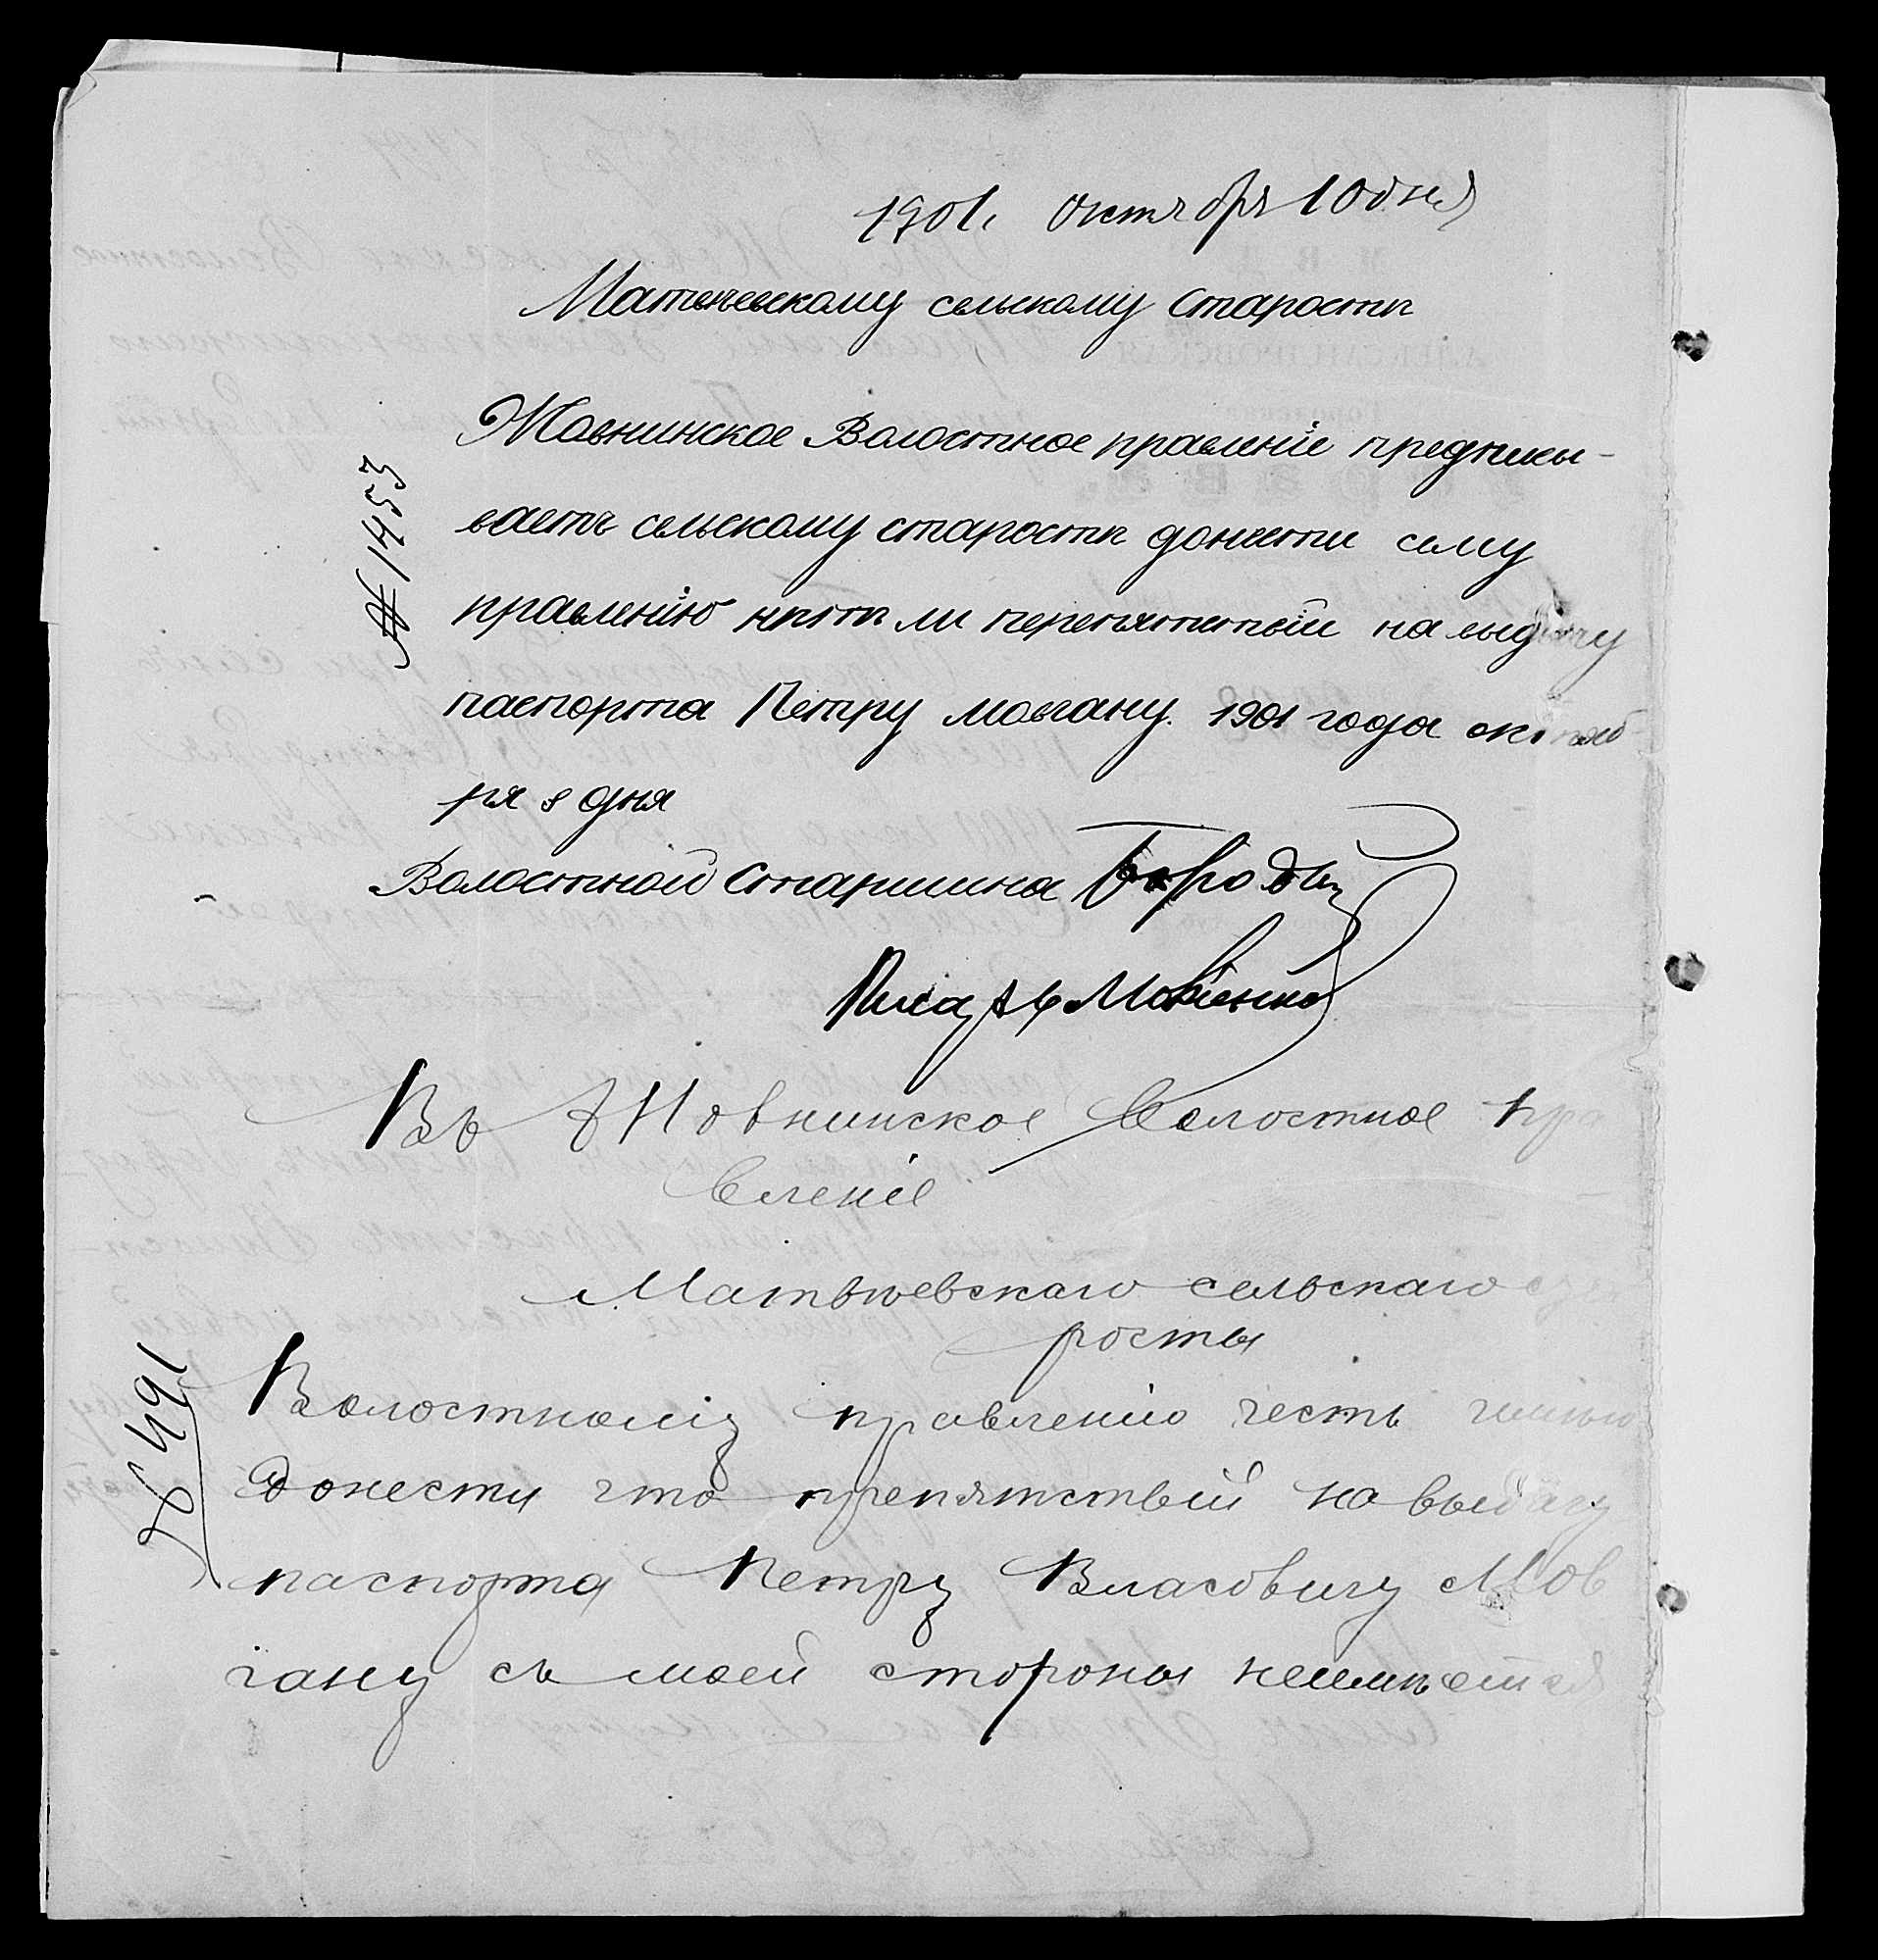 1901. октября 10 дня
Матвеевскому сельскому старостѣ
Жовнинское Волостное правленіе предписы-
ваетъ сельскому старостѣ донести сему
правленію нѣтъ ли перепятствій на выдачу
паспорта Петру Мовгану. 1901 года октяб-
ря 8 дня
№ 1453
Волостной Старшина
Писарь
Въ Жовнинское Волостное пра
вленіе
Матвѣевскаго сельскаго ста
росты
Волостному правленію честь имѣю
донести что препятствій на выдачу
паспорта Петру Власовичу Мов
гану съ моей стороны неимѣется
№ 491